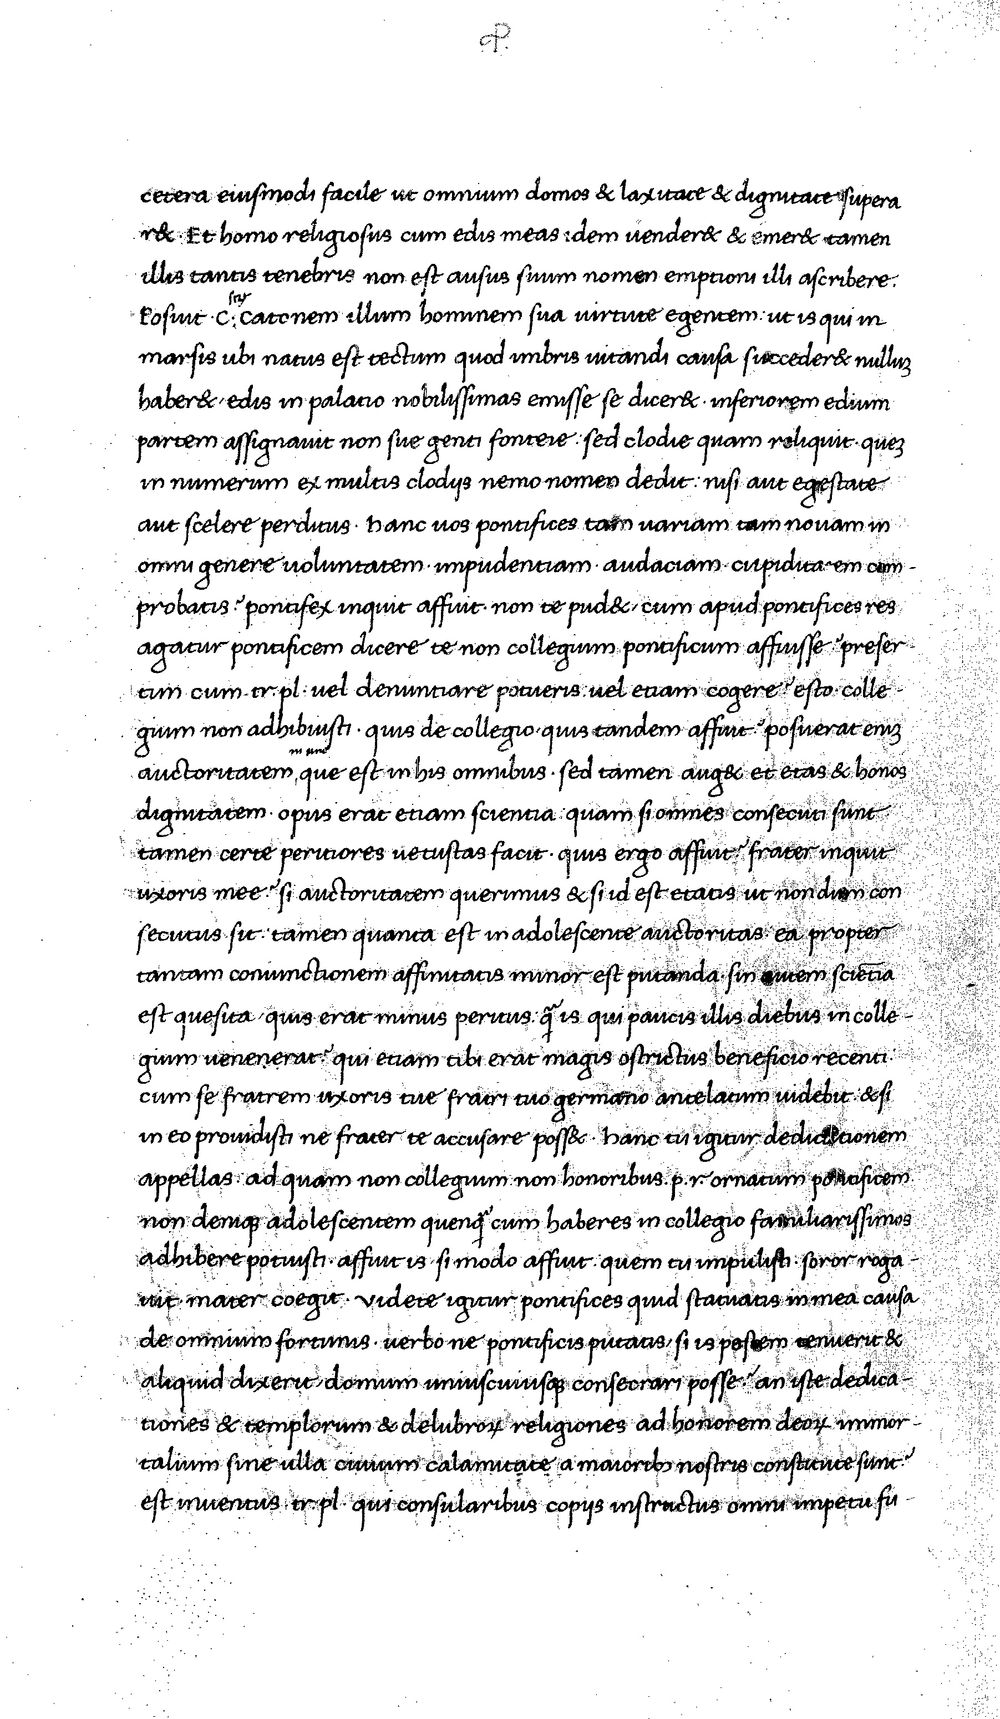 cetera eiusmodi facile ut omnium domos & laxitate & dignitate supera
r&. Et homo religiosus cum edis meas idem uender& & emer& tamen
illis tantis tenebris non est ausus suum nomen emptioni illi ascribere.
Posuit .C. Catonem illum hominem sua uirtute egentem: ut is qui in
marsis ubi natus est tectum quod imbris uitandi causa succeder& nulluʒ
haber& edis in palatio nobilissimas emisse se dicer&. inferiorem edium
partem assignauit non sue genti fonteie: sed clodie quam reliquit. queʒ
in numerum ex multis clodijs nemo nomen dedit: nisi aut egestate
aut scelere perditus. hanc uos pontifices tam uariam tam nouam in
omni genere uoluntatem. impudentiam. audaciam. cupiditatem com-
probatis? pontifex inquit affuit. non te pud& cum apud pontifices res
agatur pontificem dicere te non collegium pontificum affuisse? preser-
tim cum tr. pl. uel denuntiare potueris uel etiam cogere? esto. colle-
gium non adhibuisti. quis de collegio quis tandem affuit? posuerat eniʒ
auctoritatem, que est in his omnibus. sed tamen aug& et etas & honos
dignitatem. opus erat etiam scientia quam si omnes consecuti sunt
tamen certe peritiores uetustas facit. quis ergo affuit? frater inquit
uxoris mee? si auctoritatem querimus & si id est etatis ut nondum con
secutus sit: tamen quanta est in adolescente auctoritas. ea propter
tantam coniunctionem affinitatis minor est putanda. sin autem sciētia
est quesita quis erat minus peritus q̃ is qui paucis illis diebus in colle-
gium uenenerat? qui etiam tibi erat magis ostrictus beneficio recenti
cum se fratrem uxoris tue fratri tuo germano antelatum uidebit. & si
in eo prouidisti ne frater te accusare poss&. hanc tu igitur dedicationem
appellas: ad quam non collegium non honoribus .p. r. ornatum pontificem
non deniqꝫ adolescentem quenq̃ cum haberes in collegio familiarissimos
adhibere potuisti. affuit is si modo affuit quem tu impulisti. soror roga-
uit mater coegit. Videte igitur pontifices quid statuatis in mea causa
de omnium fortunis. uerbo ne pontificis putatis si is postem tenuerit &
aliquid dixerit domum uniuscuiusqꝫ consecrari posse? an iste dedica-
tiones & templorum & delubroꝝ religiones ad honorem deoꝝ immor-
talium sine ulla ciuium calamitate a maioribꝫ nostris constitute sunt?
est inuentus tr. pl. qui consularibus copijs instructus omni impetu fu-